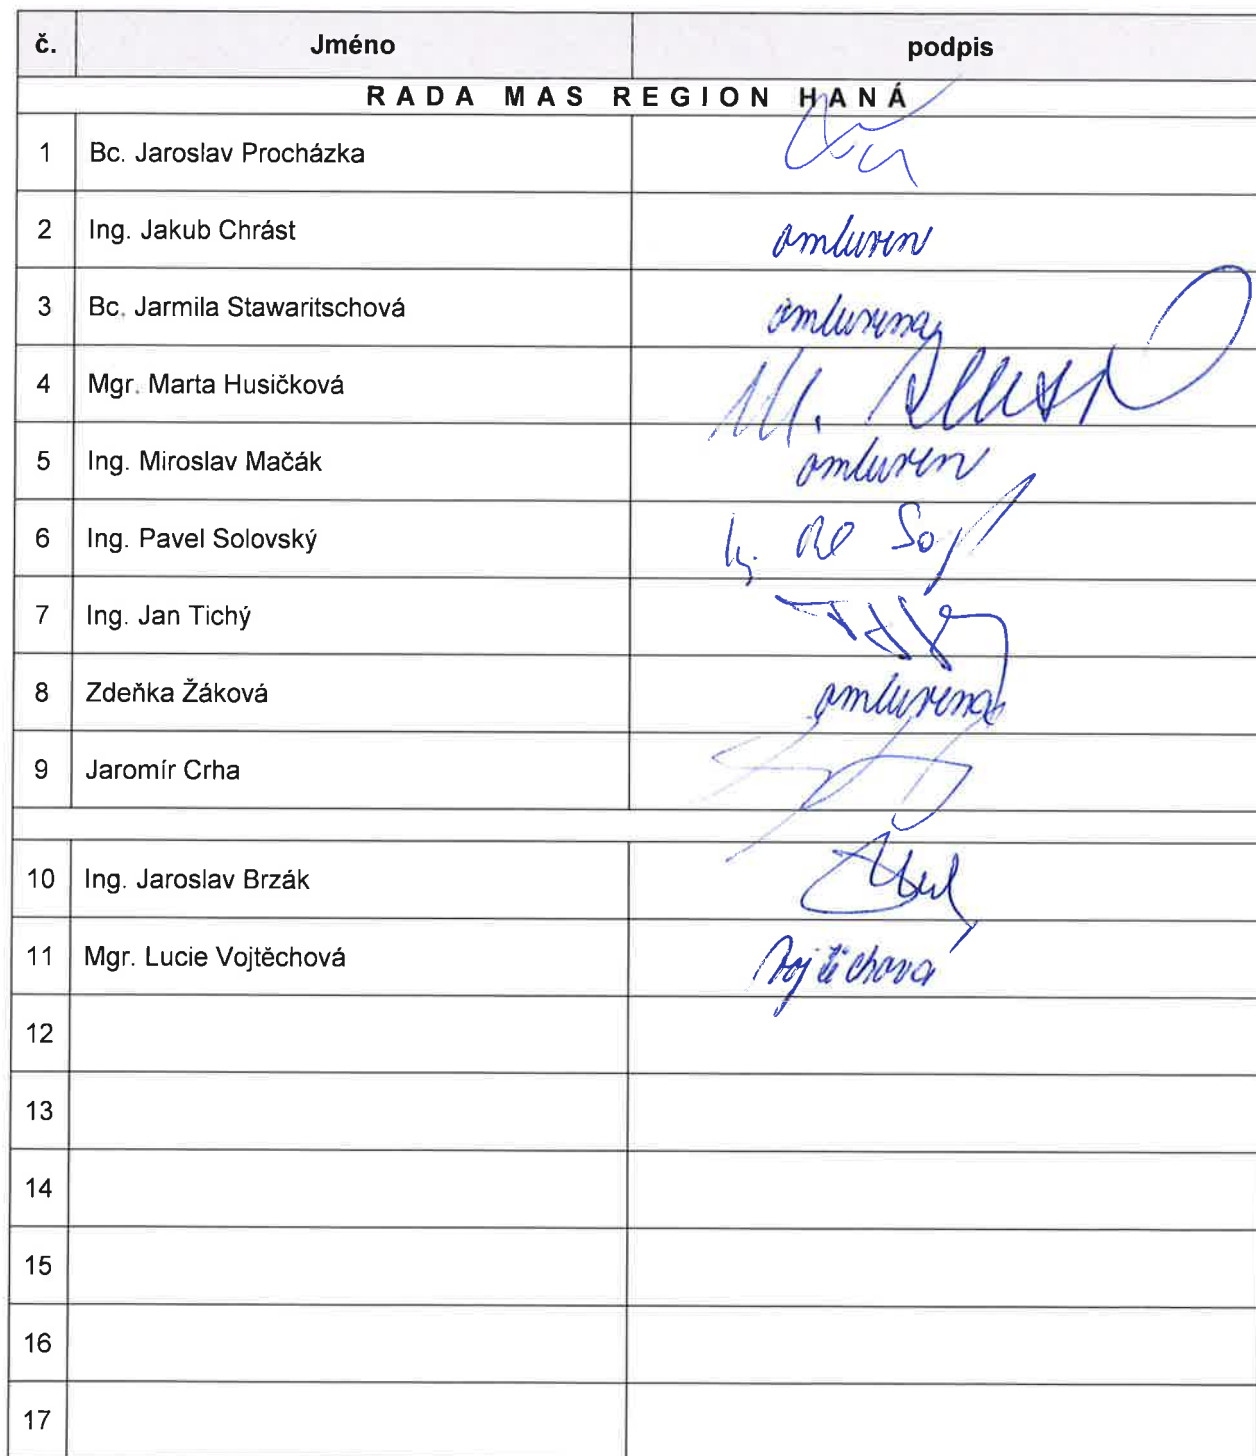 č. Jméno podpis
RADA MAS REGION HANÁ
1 Bc. Jaroslav Procházka
2 Ing. Jakub Chrást omluven
3 Bc. Jarmila Stawaritschová omluvena
4 Mgr. Marta Husičková M.
5 Ing. Miroslav Mačák omluven
6 Ing. Pavel Solovský
7 Ing. Jan Tichý
8 Zdeňka Žáková omluvena
9 Jaromír Crha
10 Ing. Jaroslav Brzák
11 Mgr. Lucie Vojtěchová Vojtěchová
12
13
14
15
16
17